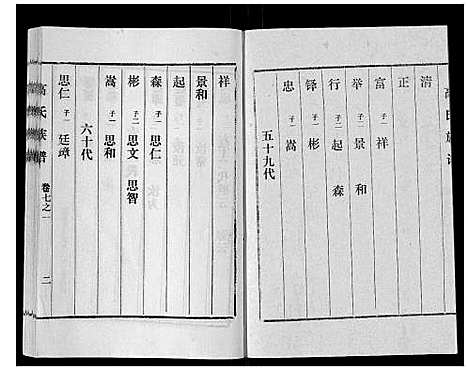 高氏族谱
清
正
富 子一 祥
举 子一 景和
行 子二 起 森
铎 子一 彬
忠 子一 嵩
五十九代
祥
景和
起
森 子一 思仁
彬 子二 思文 思智
嵩 子一 思和
六十代
思仁 子一 廷璋
高氏族谱 卷七之一 二